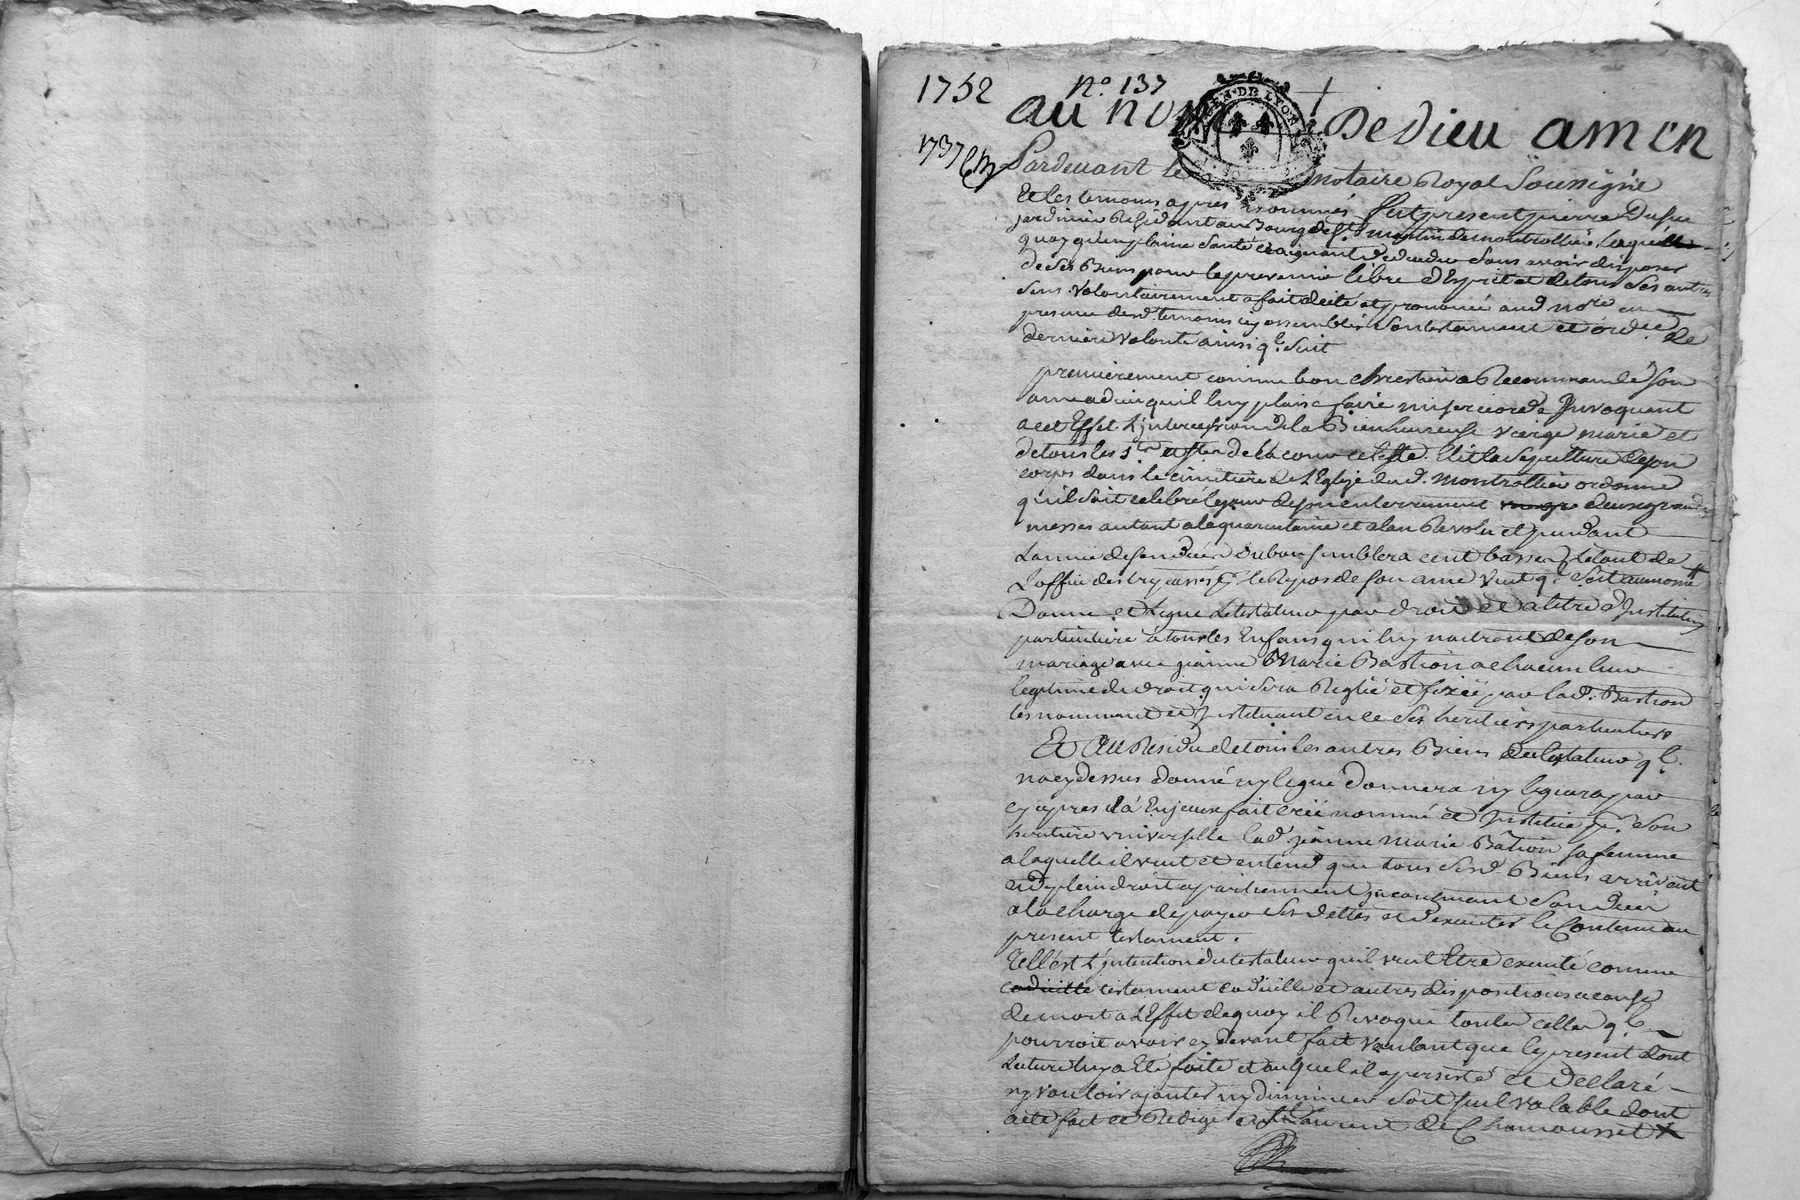 1752 N.o 137
GEN. DE LYON
au nom De Dieu amen
1737
Pardevant le notaire Royal Soussigné
Et les temoins apres nommés fut present pierre Dufu
jardinier Residant au Bourg de St. martin de montrottier, lequel
quoy qu'en plaine Santé craignant de deceder Sans avoir disposer
de Ses Biens pour le prevenir libre d'Esprit et de tous Ses autres
Sens Volontairement a fait dicté et prononcé aud nore en
presence desd. temoins icy assemblés Son testament et ordce. de
derniere Volonte ainsi q.l Suit
premierement comme bon chrestien a Recommandé Son
ame a dieu qu'il luy plaise faire misericorde Jnvoquant
a cet Effet L'jntercession de la Bienheureuse Vierge marie et
de tous les Sts et Stes de la cour celeste. Elit la Sepulture de Son
corps dans le cimetiere de L'Eglise dud. montrottier ordonne
qu'il Soit celebré le jour de Son enterrement deux grandes
messes autant a la quarantaine et a l'an Revolu et pendant
L'année de Son decés ou bon Semblera cent basses le tout de
L'office des trepassés pr. le Repos de Son ame Veut q. Soit aumoné
Donne et Legue Le testateur par droit et a titre d'Jnstitution
particuliere a tous les Enfans qui luy naitront de Son
mariage avec jeanne Marie Bastion a chacun leur
legitime de droit qui Sera Reglée et fixée par lad. Bastion
les nommant et Jnstituant en ce Ses heritiers particuliers
Et Au Residu de tous les autres Biens du testateur q.l
n'a cy dessus donné ny legué donnera ny leguera par
cy apres il a fait créé nommé et Jnstitué pr. Son
heritiere universelle lad. jeanne marie Bation Sa femme
a laquelle il veut et entend que tous Sesd. Biens arrivent
en plein droit apartiennent jncontinant Son decés
a la charge de payer Ses dettes et d'executer le Contenu au
present testament.
Telle est L'jntention du testateur qu'il veut Etre executé comme
codicille testament codicille et autres dispositions a cause
de mort a L'Effet de quoy il Revoque toutes celles q.l
pourroit avoir cy devant fait voulant que le present dont
Lecture luy a Eté faite et auquel il a persisté et declaré
ny vouloir ajouter ny diminuer Soit Seul Valable dont
acte fait et Redigé a St Laurent de Chamousset